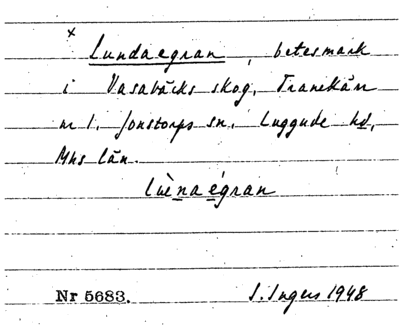 x
Lundaegran, betesmark
i Vasabäcks skog, Tranekärr
nr 1. Jonstorps sn. Luggude hd,
Mhs län.
luènaégran
Nr 5683. I. Ingers 1948